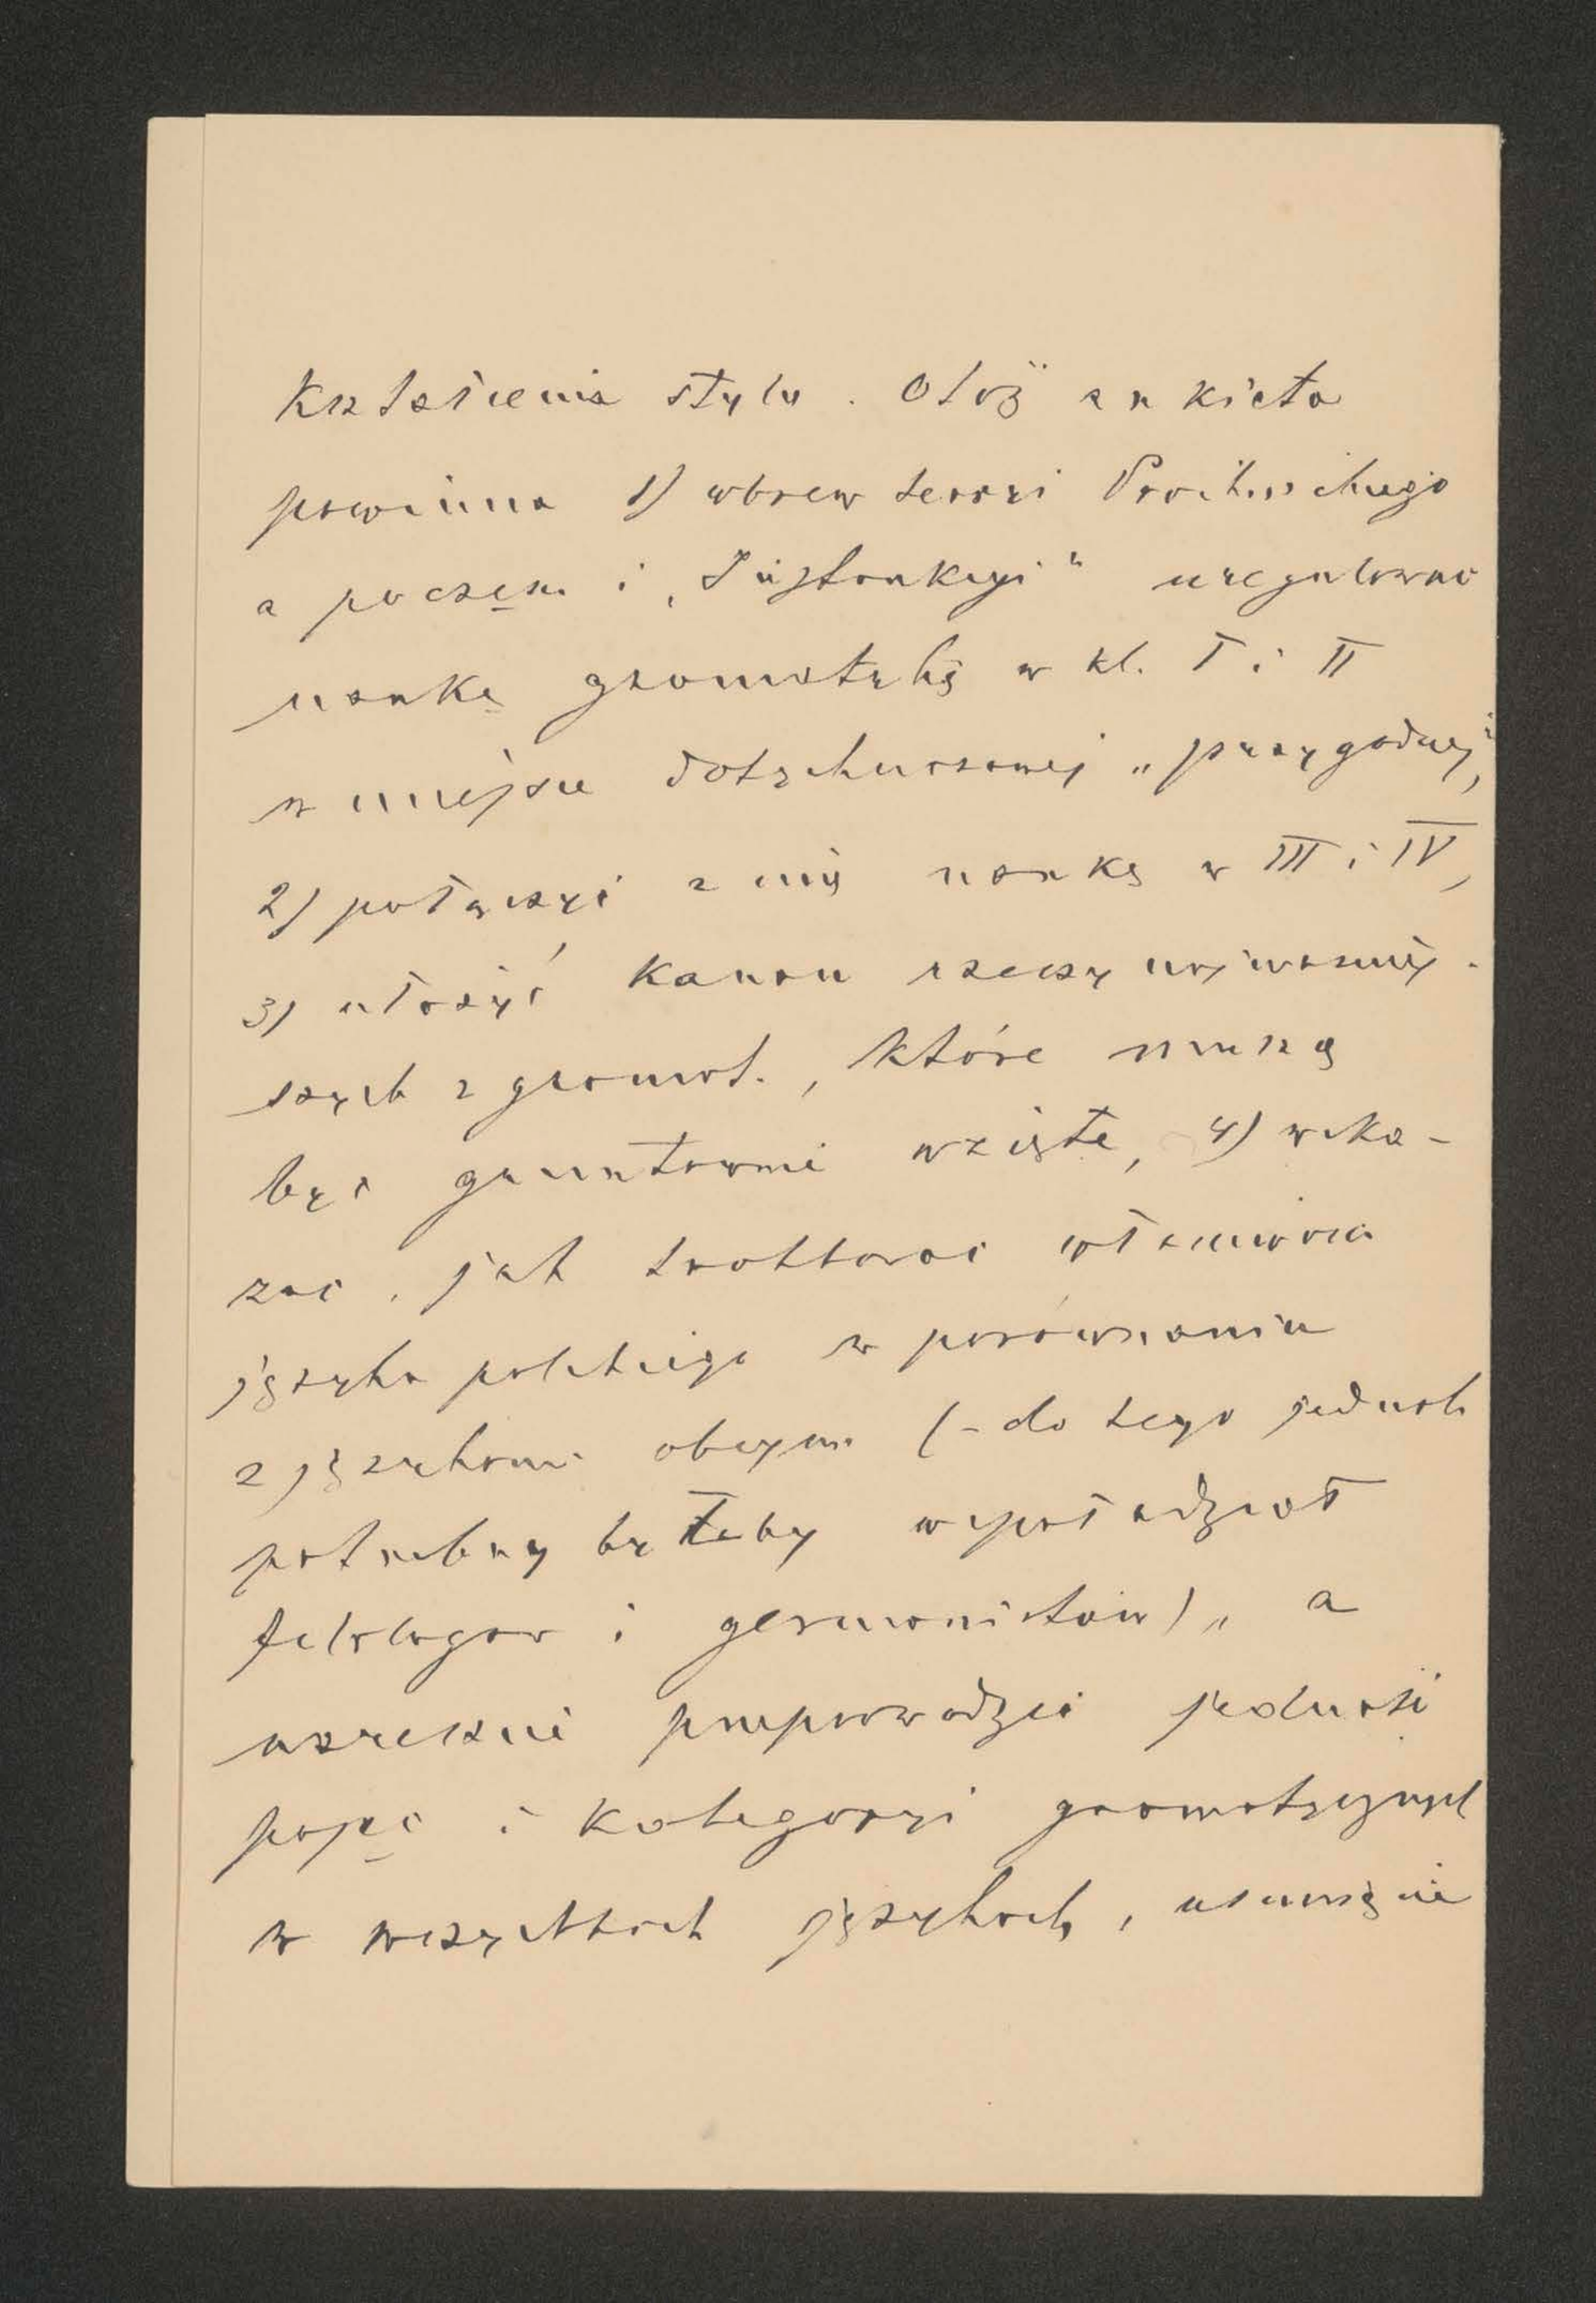 kształcenia stylu. Otóż ankieta
powinna 1) wbrew teoryi Próchnickiego
a poczęści i „Instrukcyi" uregulować
naukę gramatyki w kl. I i II
w miejsce dotychczasowej „przygodnej",
2) połączyć z nią naukę w III i IV,
3) ułożyć kanon rzeczy najważniej-
szych z gramat., które muszą
być gruntownie wzięte, 4) wska-
zać, jak traktować właściwości
języka polskiego w porównaniu
z językami obcymi (- do tego jednak
potrzebny byłby współudział
filologów i germanistów), a
wreszcie przeprowadzić jedność
pojęć i kategoryi gramatycznych
w wszystkich językach, usunięcie